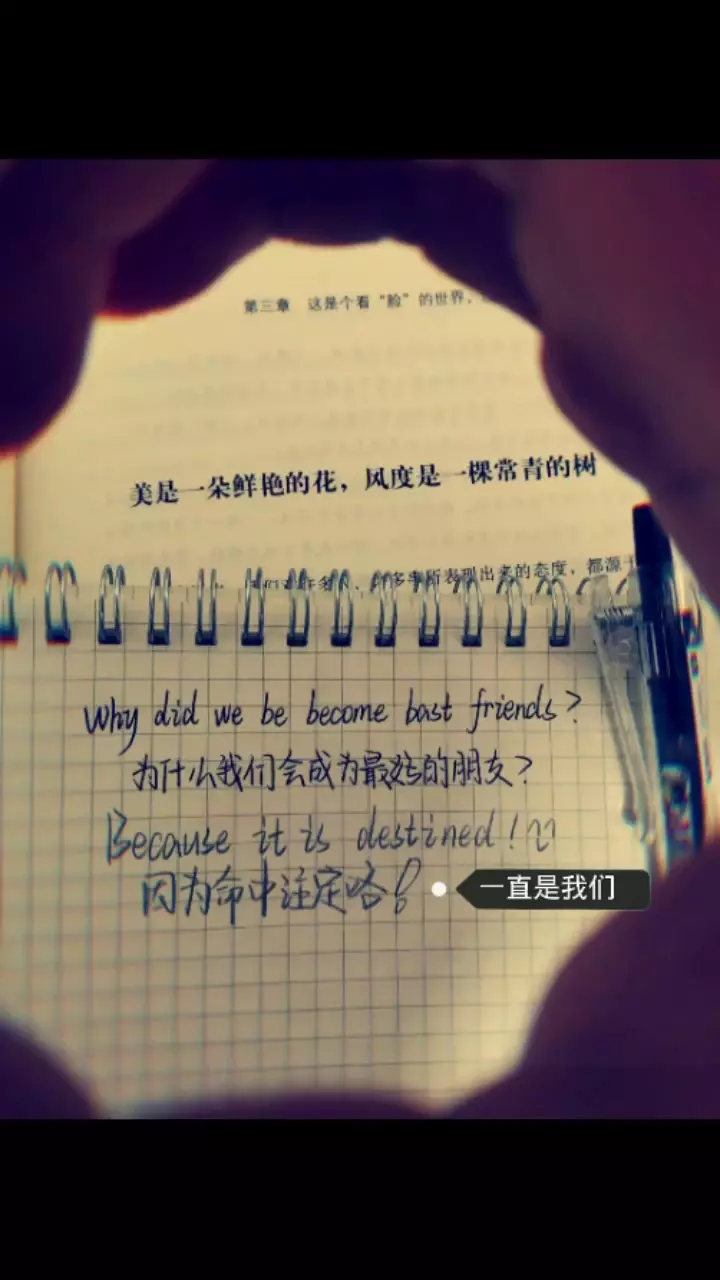 第三章 这是个看“脸”的世界,
美是一朵鲜艳的花,风度是一棵常青的树
多事所表现出来的态度,都源于
Why did we be become bast friends?
为什么我们会成为最好的朋友?
Because it is destined!
因为命中注定咯!
一直是我们